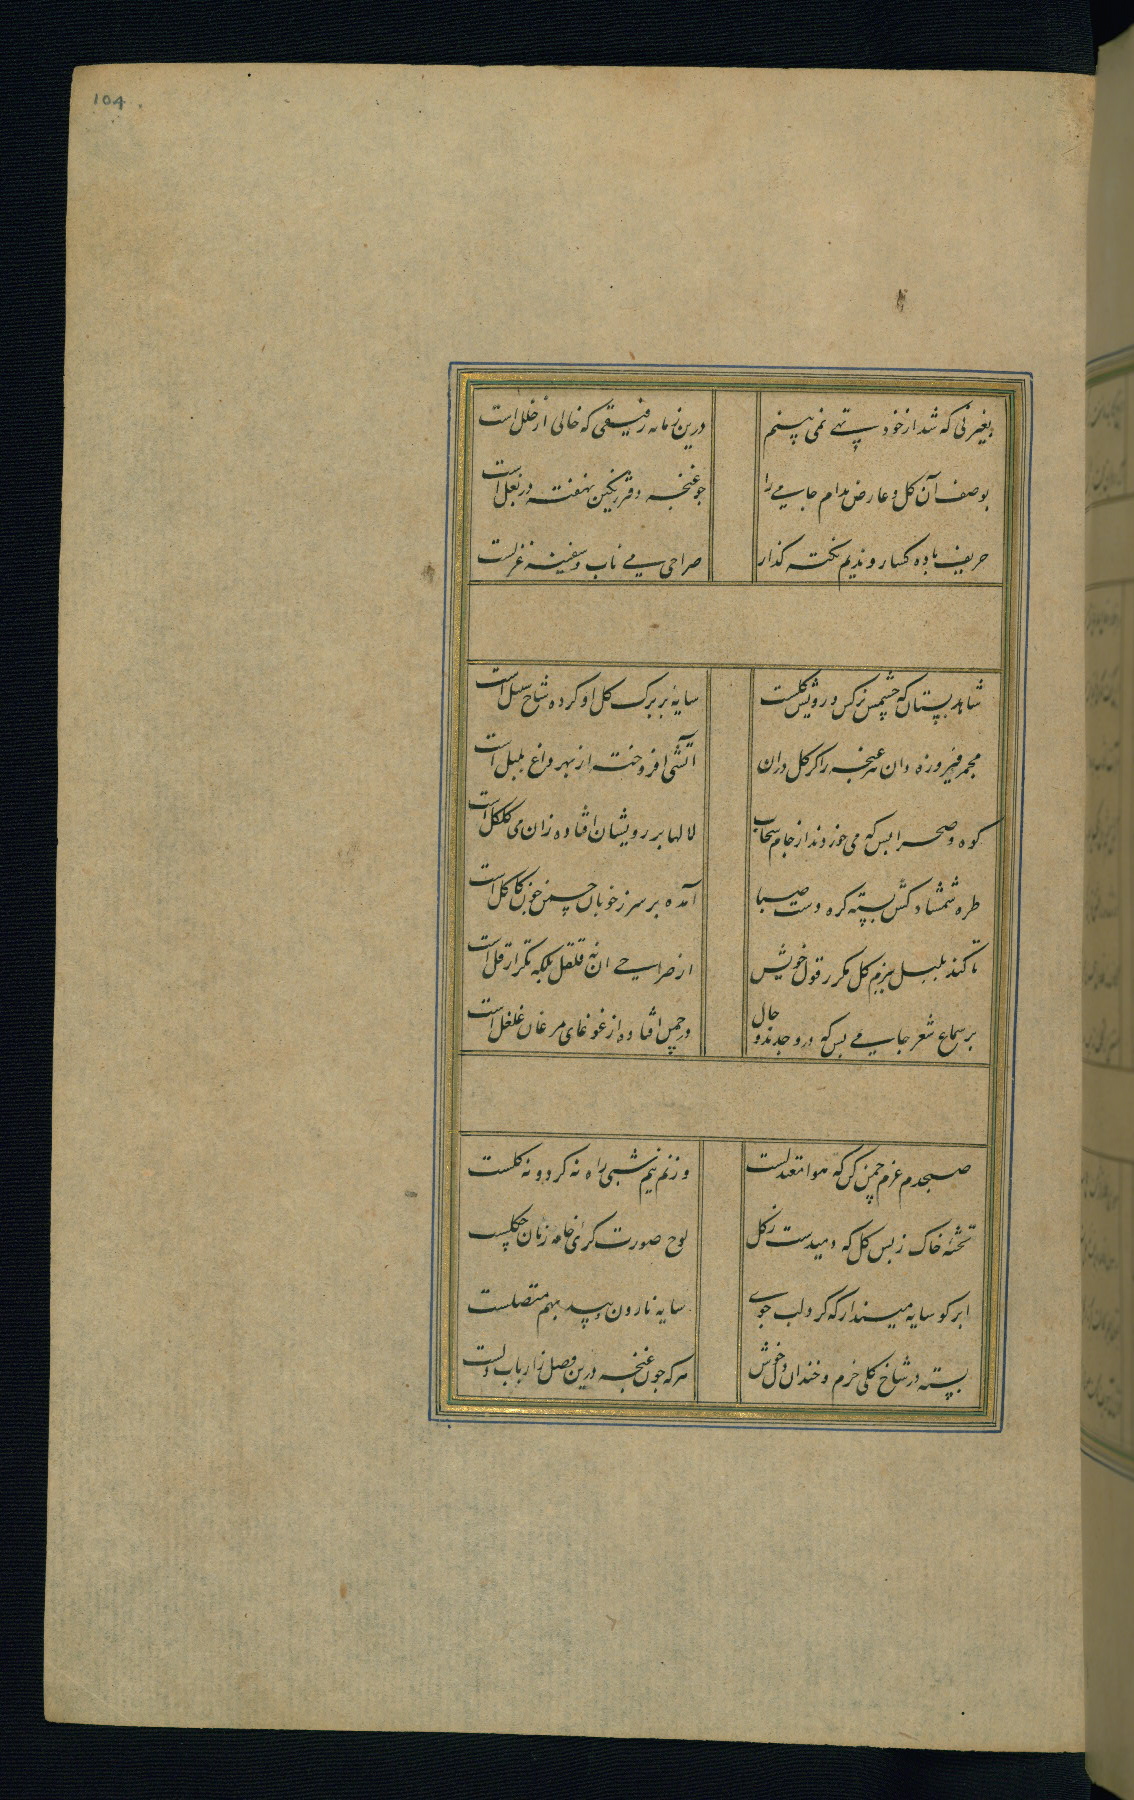 104
بغیر نی که شد از خود تهی نمی بینم
درین زمانه رفیقی که خالی از خلل است
بوصف آن گل و عارض مدام جامی را
جو غنجه دفتر رنگین نهفته در بغل است
حریف باده کسار و ندیم نکته کذار
صراحی می ناب و سفینه غزلست
شاهد بستان که چشمش نرکس و رویش کلست
سایه بر برک کل او کرده شاخ سنبل است
مجمر فیروزه دان هر غنجه را کز کل دران
آتشی افروخته از بهر داغ بلبل است
کوه و صحرا بس که می خوردند از جام سحاب
لالها بر رویشان افتاده زان می کلکل است
طره شمشاد کش بسته کره دست صبا
آمده بر سر ز خوبان چمن چون کاکل است
تا کند بلبل ببزم کل مکرر قول خویش
از صراحی آن نه قلقل بلکه تکرار قل است
بر سماع شعر جامی بس که در وجدند و حال
در چمن افتاده از غوغای مرغان غلغل است
صبحدم عزم چمن کن که هوا معتدلست
وز نم نیم شبی راه نه کرد و نه کلست
تخته خاک ز بس کل که دمیدست ز کل
لوح صورت کری خامه زنان چکلست
ابر کو سایه مینداز که کرد لب جوی
سایه نارون و بید بهم متصلست
بسته در شاخ کلی خرم و خندان دل خوش
هر که جون غنجه درین فصل ز ارباب دلست